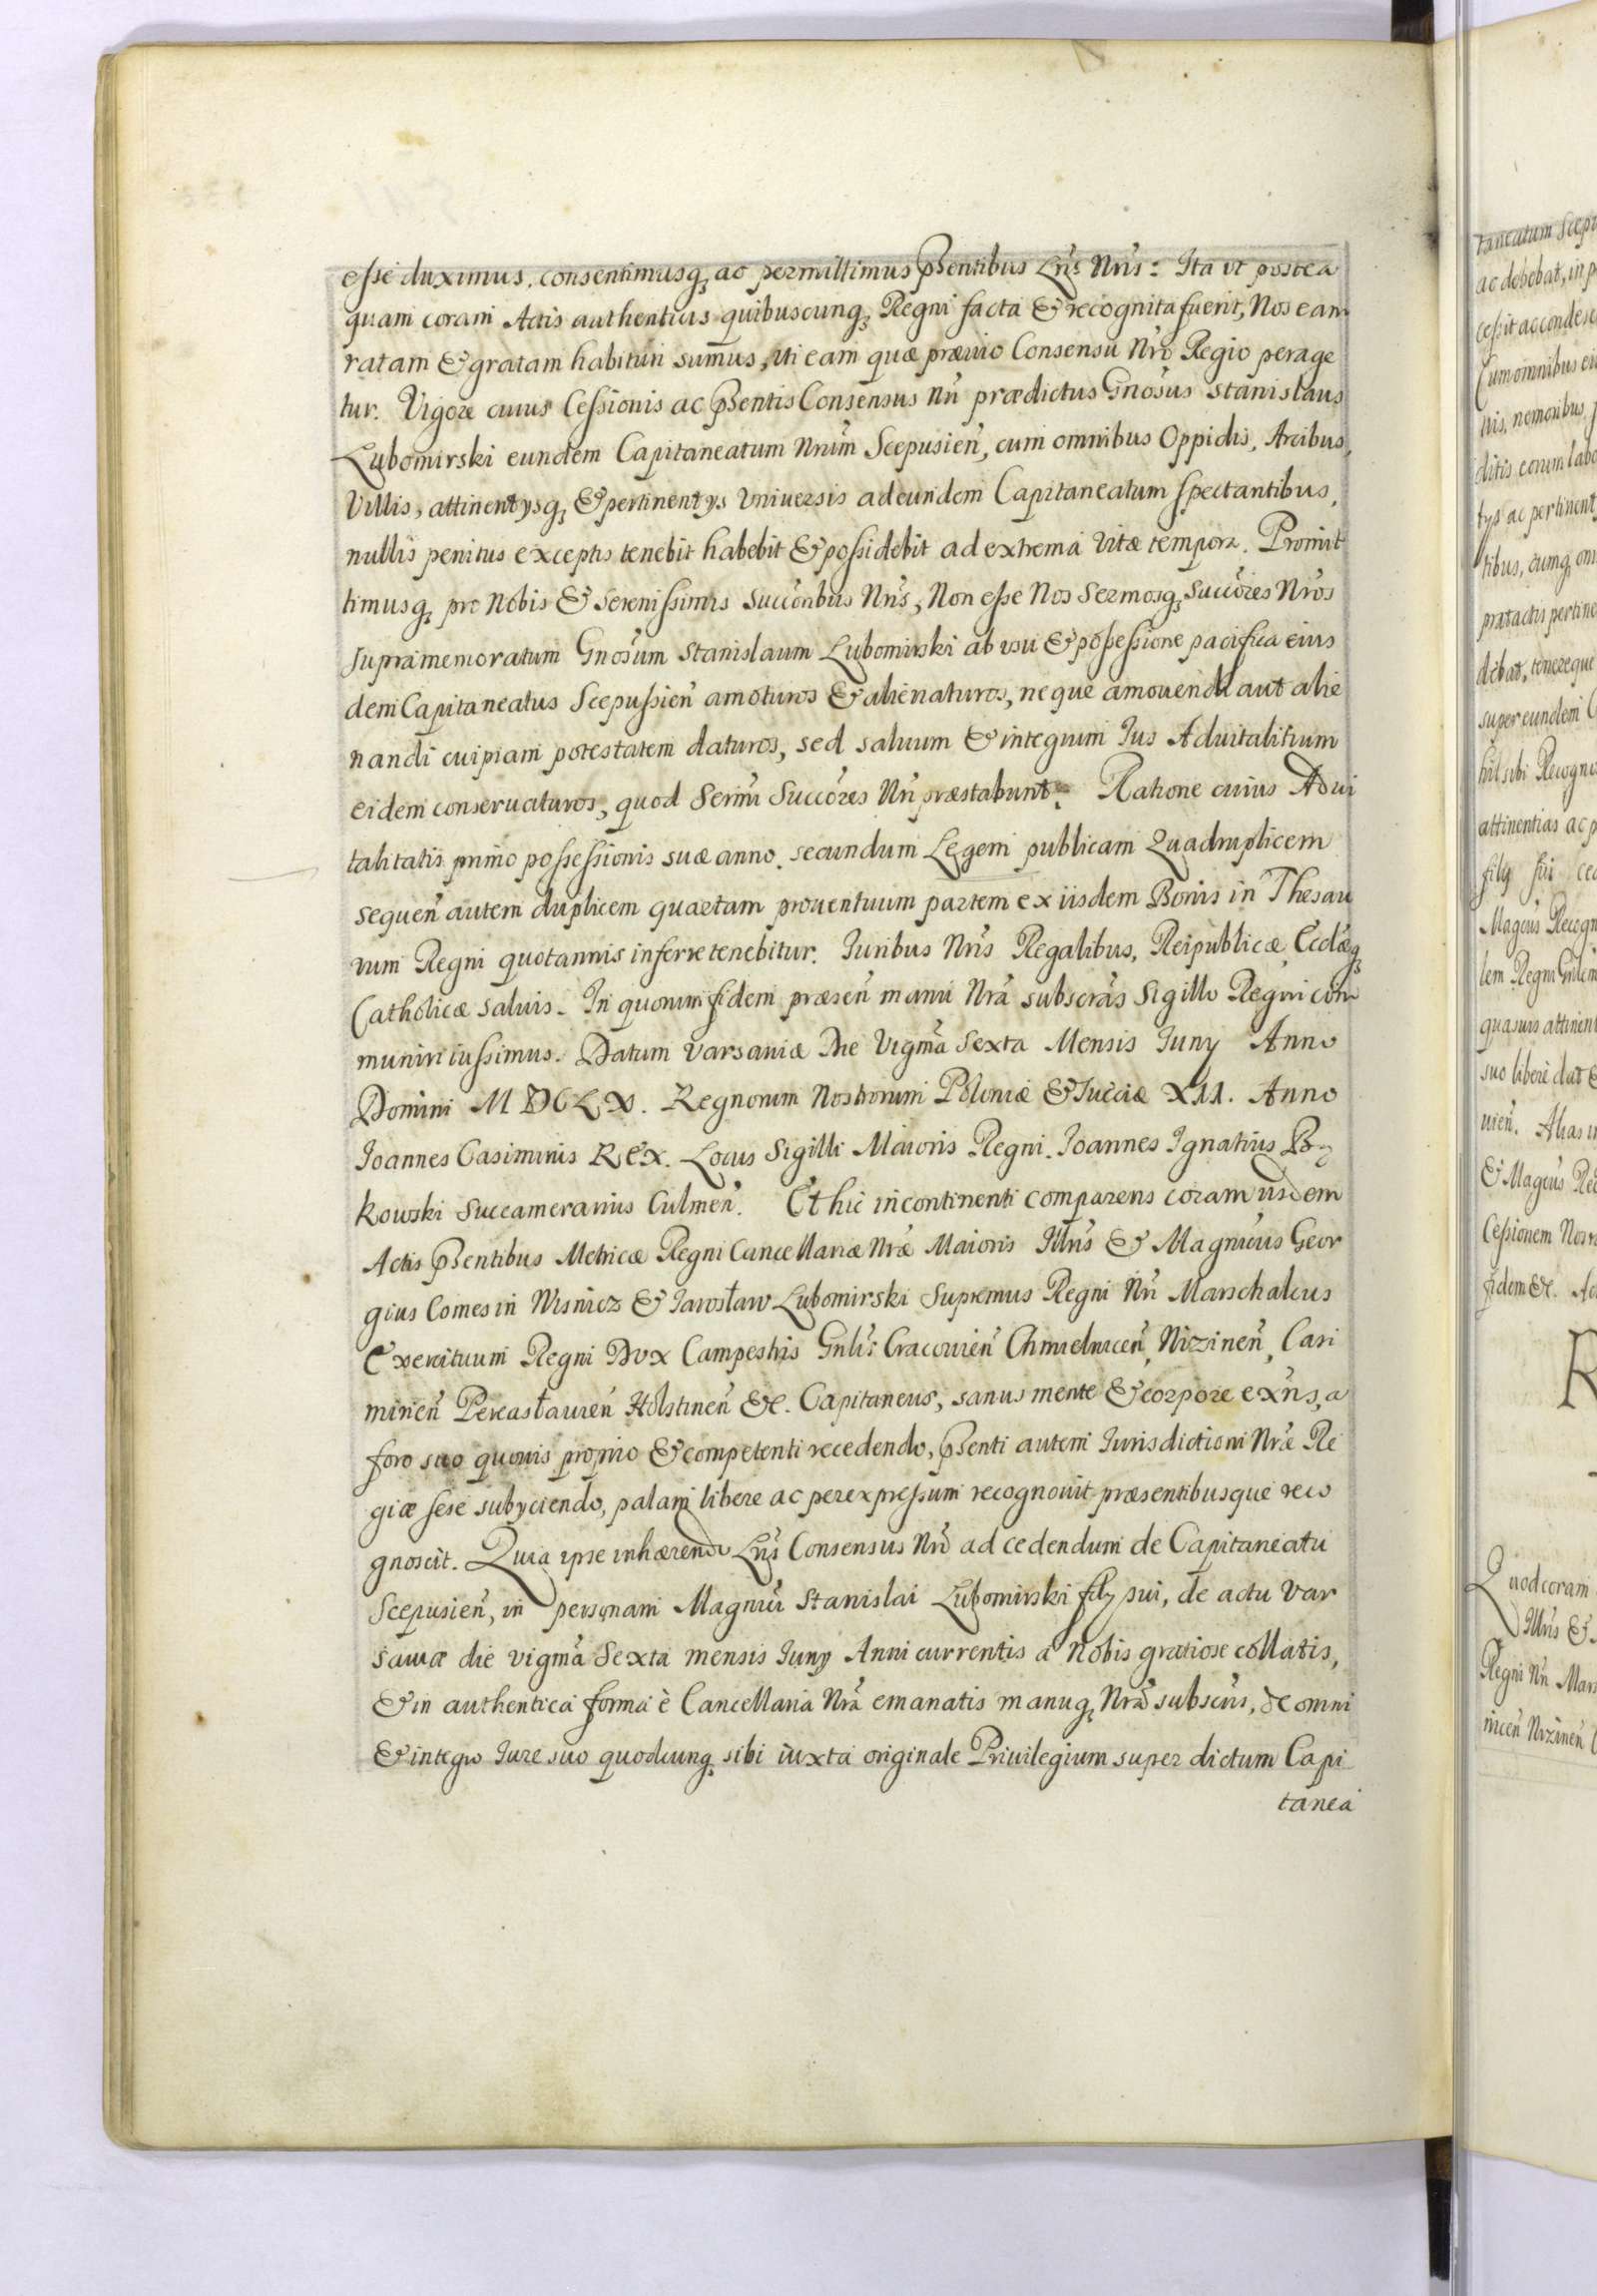 esse duximus, consentimusq, ac permittimus pñsentibus Lr̃is Nr̃is: Ita ut postea
quam coram Actis authenticis quibuscunq, Regni facta & recognita fuerit, Nos eam
ratam & gratam habituri sumus, uti eam quæ prævio Consensu Nr̃o Regio perage
tur. Vigore cuius Cessionis ac pñsentis Consensus Nr̃i prædictus Gnõsus Stanislaus
Lubomirski eundem Capitaneatum Nr̃um Scepusieñ, cum omnibus Oppidis, Arcibus,
Villis, attinentysq, & pertinentys Universis ad eundem Capitaneatum spectantibus,
nullis penitus exceptis tenebit habebit & possidebit ad extrema Vitæ tempora. Promit
timusq, pro Nobis & Serenissimis Succoribus Nr̃is, Non esse Nos Sermosq, Succores Nr̃os
supramemoratum Gnõsum Stanislaum Lubomirski ab usu & possessione pacifica eius
dem Capitaneatus Scepussieñ amoturos & alienaturos, neque amovendi aut alie
nandi cuipiam potestatem daturos, sed saluum & integrum Ius Advitalitium
eidem conservaturos, quod Sermi Succores Nr̃i præstabunt. Ratione cuius Advi
talitatis primo possessionis suæ anno secundum Legem publicam Quadruplicem
sequeñ autem duplicem quartam prouentuum partem ex iisdem Bonis in Thesau
rum Regni quotannis inferre tenebitur. Iuribus Nr̃is Regalibus, Reipublicæ, Ecclæq,
Catholicæ salvis. In quorum fidem præseñ manu Nr̃a subscras Sigillo Regni com
muniri iussimus. Datum Varsaviæ Die Vigma Sexta Mensis Iuny Anno
Domini MDCLX. Regnorum Nostrorum Poloniæ & Sueciæ XII. Anno
Joannes Casimirus REX. Locus Sigilli Maioris Regni. Joannes Ignatius Bą
kowski Succamerarius Culmeñ. Et hic in continenti comparens coram iisdem
Actis pñsentibus Metricæ Regni Cancellariæ Nr̃æ Maioris Illris & Magnicus Geor
gius Comes in Wisnicz & Jarosław Lubomirski Supremus Regni Nr̃i Marschalcus
Exercituum Regni Dux Campestris Gnlis Cracovieñ Chmielniceñ, Nizineñ, Casi
mirieñ Pereasłavieñ Holstineñ &c. Capitaneus, sanus mente & corpore exñs, a
foro suo quovis proprio & competenti recedendo, pñsenti autem Iurisdictioni Nr̃æ Re
giæ sese subyciendo, palam libere ac per expressum recognovit præsentibusque reco
gnoscit. Quia ipse inhærendo Lr̃is Consensus Nr̃i ad cedendum de Capitaneatu
Scepusieñ, in personam Magnici Stanislai Lubomirski fily sui, de actu Var
saviæ die vigma Sexta mensis Iuny Anni currentis a Nobis gratiose collatis,
& in authentica forma è Cancellaria Nr̃a emanatis manuq, Nr̃a subscris, de omni
& integro Iure suo quodcunq, sibi iuxta originale Privilegium super dictum Capi
tanea